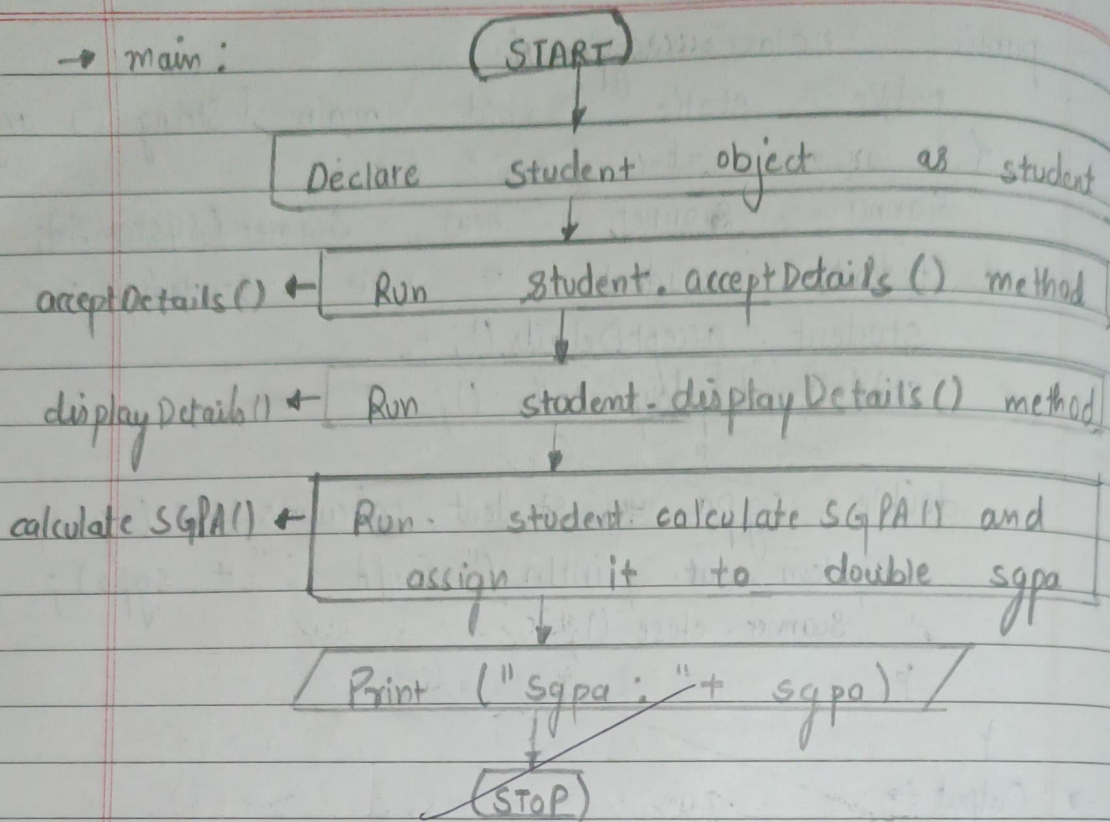 → main :
START
Declare student object as student
acceptDetails() ← Run student.acceptDetails() method
displayDetails() ← Run student.displayDetails() method
calculate SGPA() ← Run student.calculate SGPA() and
assign it to double sgpa
Print ("sgpa : "+ sgpa)
STOP